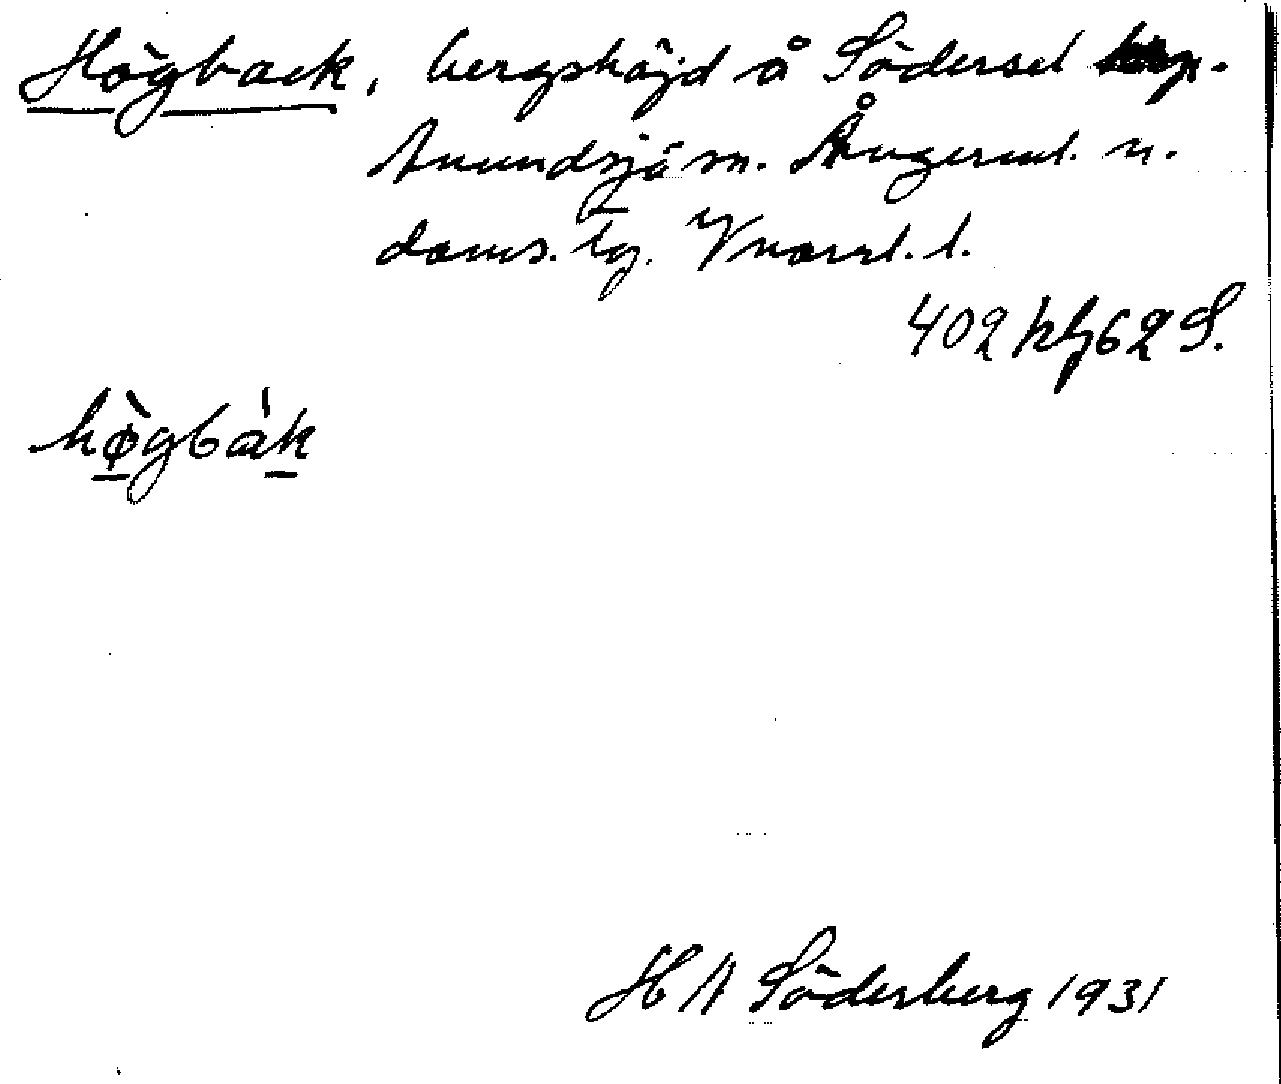 Högback, bergshöjd å Södersel
Anundsjö sn. Ångerml. n.
doms. lg. Vnorrl. l.
402 kg 62 S.
hø̀gbàk
H A Söderberg 1931